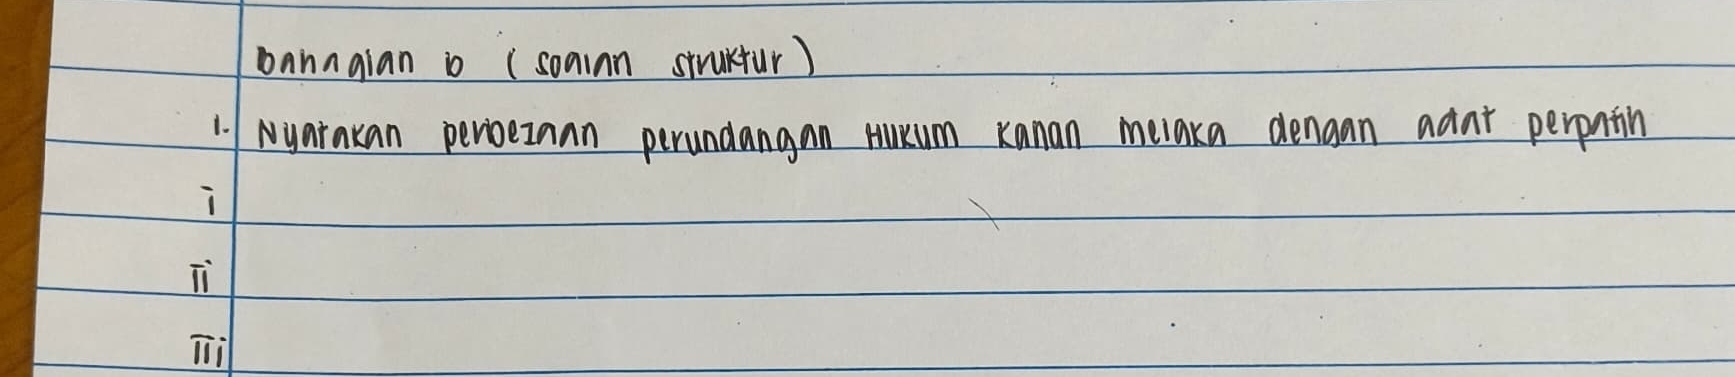 bahagian b (soalan struktur)
1. Nyatakan perbezaan perundangan Hukum Kanan melaka dengan adat perpatih
i
ii
iii